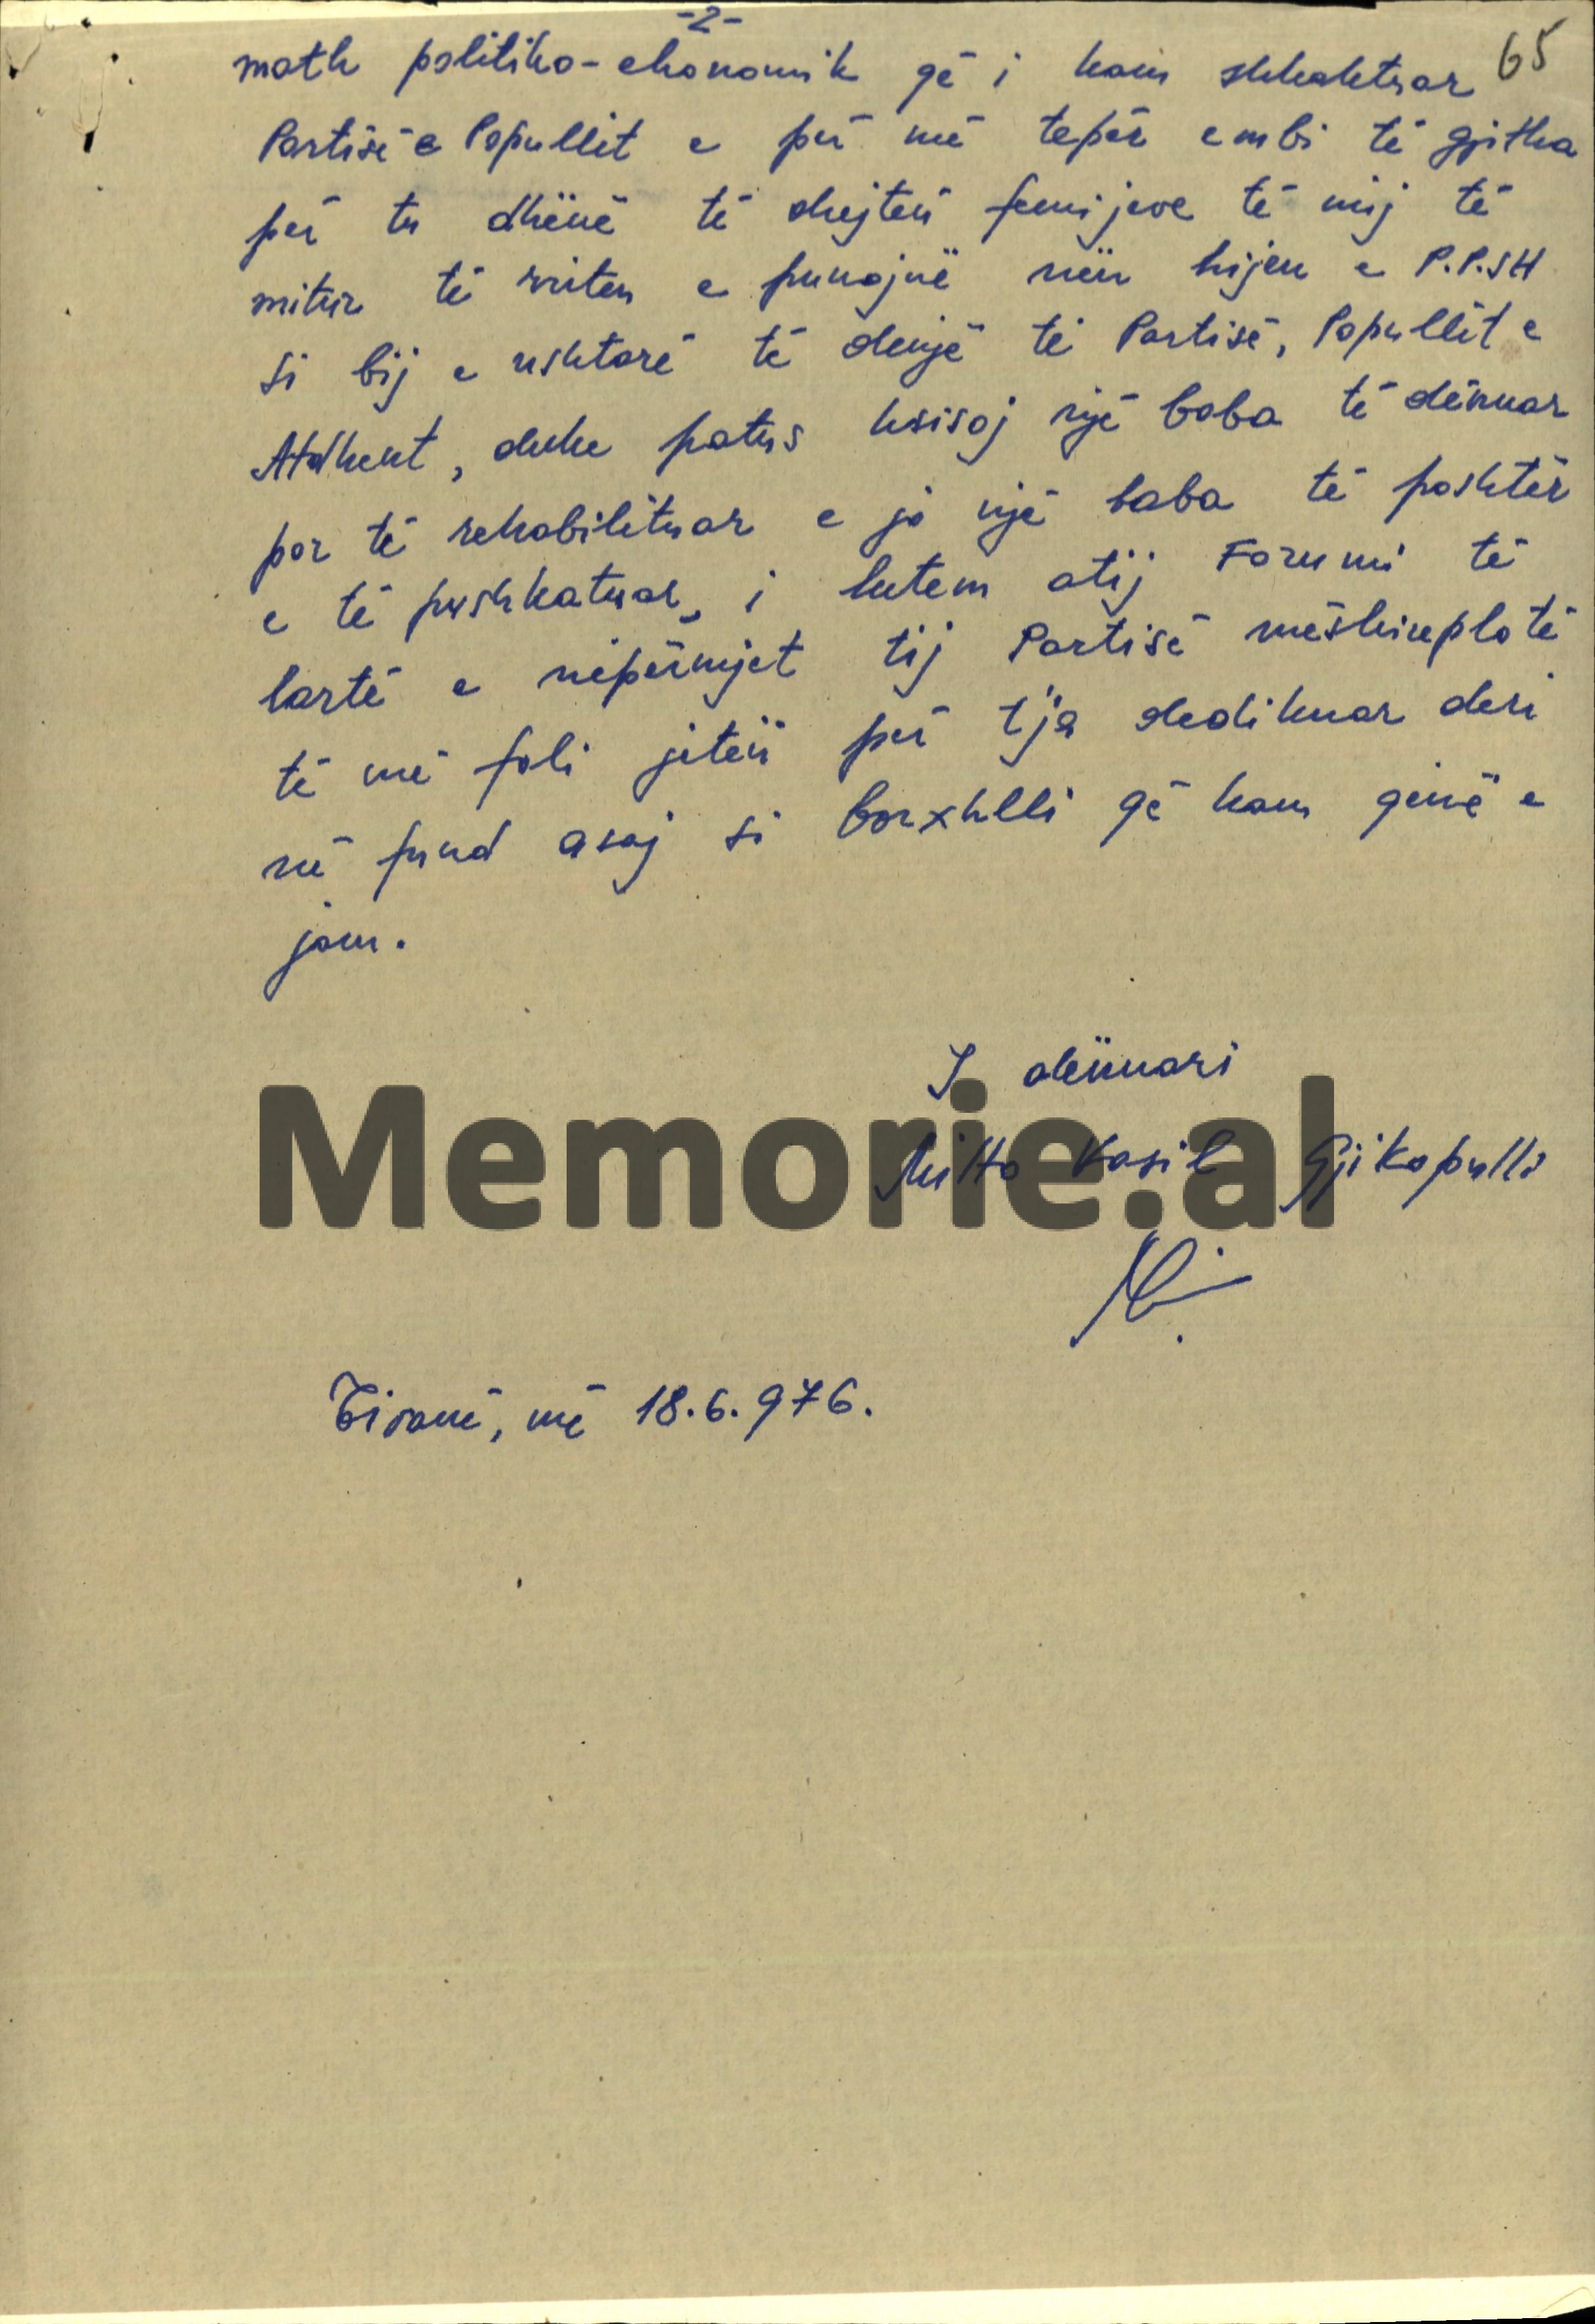 -2-
65
math politiko-ekonomik që i kam shkaktuar
Partisë e Popullit e për më tepër e mbi të gjitha
për tu dhënë të drejtën femijeve të mij të
mitur të rriten e punojnë nën hijen e P.P.SH
si bij e ushtarë të denjë të Partisë, Popullit e
Atdheut, duke patur ksisoj një baba të dënuar
por të rehabilituar e jo një baba të poshtër
e të pushkatuar, i lutem atij Forumi të
lartë e nëpërmjet tij Partisë mëshirëplotë
të më fali jetën për t'ja dedikuar deri
në fund asaj si borxhlli që kam qënë e
jam.
I dënuari
Milto Vasil Gjikopulli
Tiranë, më 18.6.976.
Memorie.al